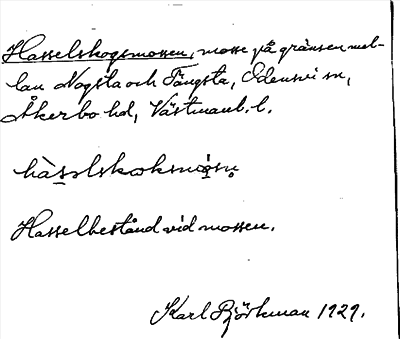 Hasselskogsmossen, mosse på gränsen mel-
lan Nogsta och Tängsta, Odensvi sn,
Åkerbo hd, Västmanl. l.
Hasselbestånd vid mossen.
Karl Björkman 1929.